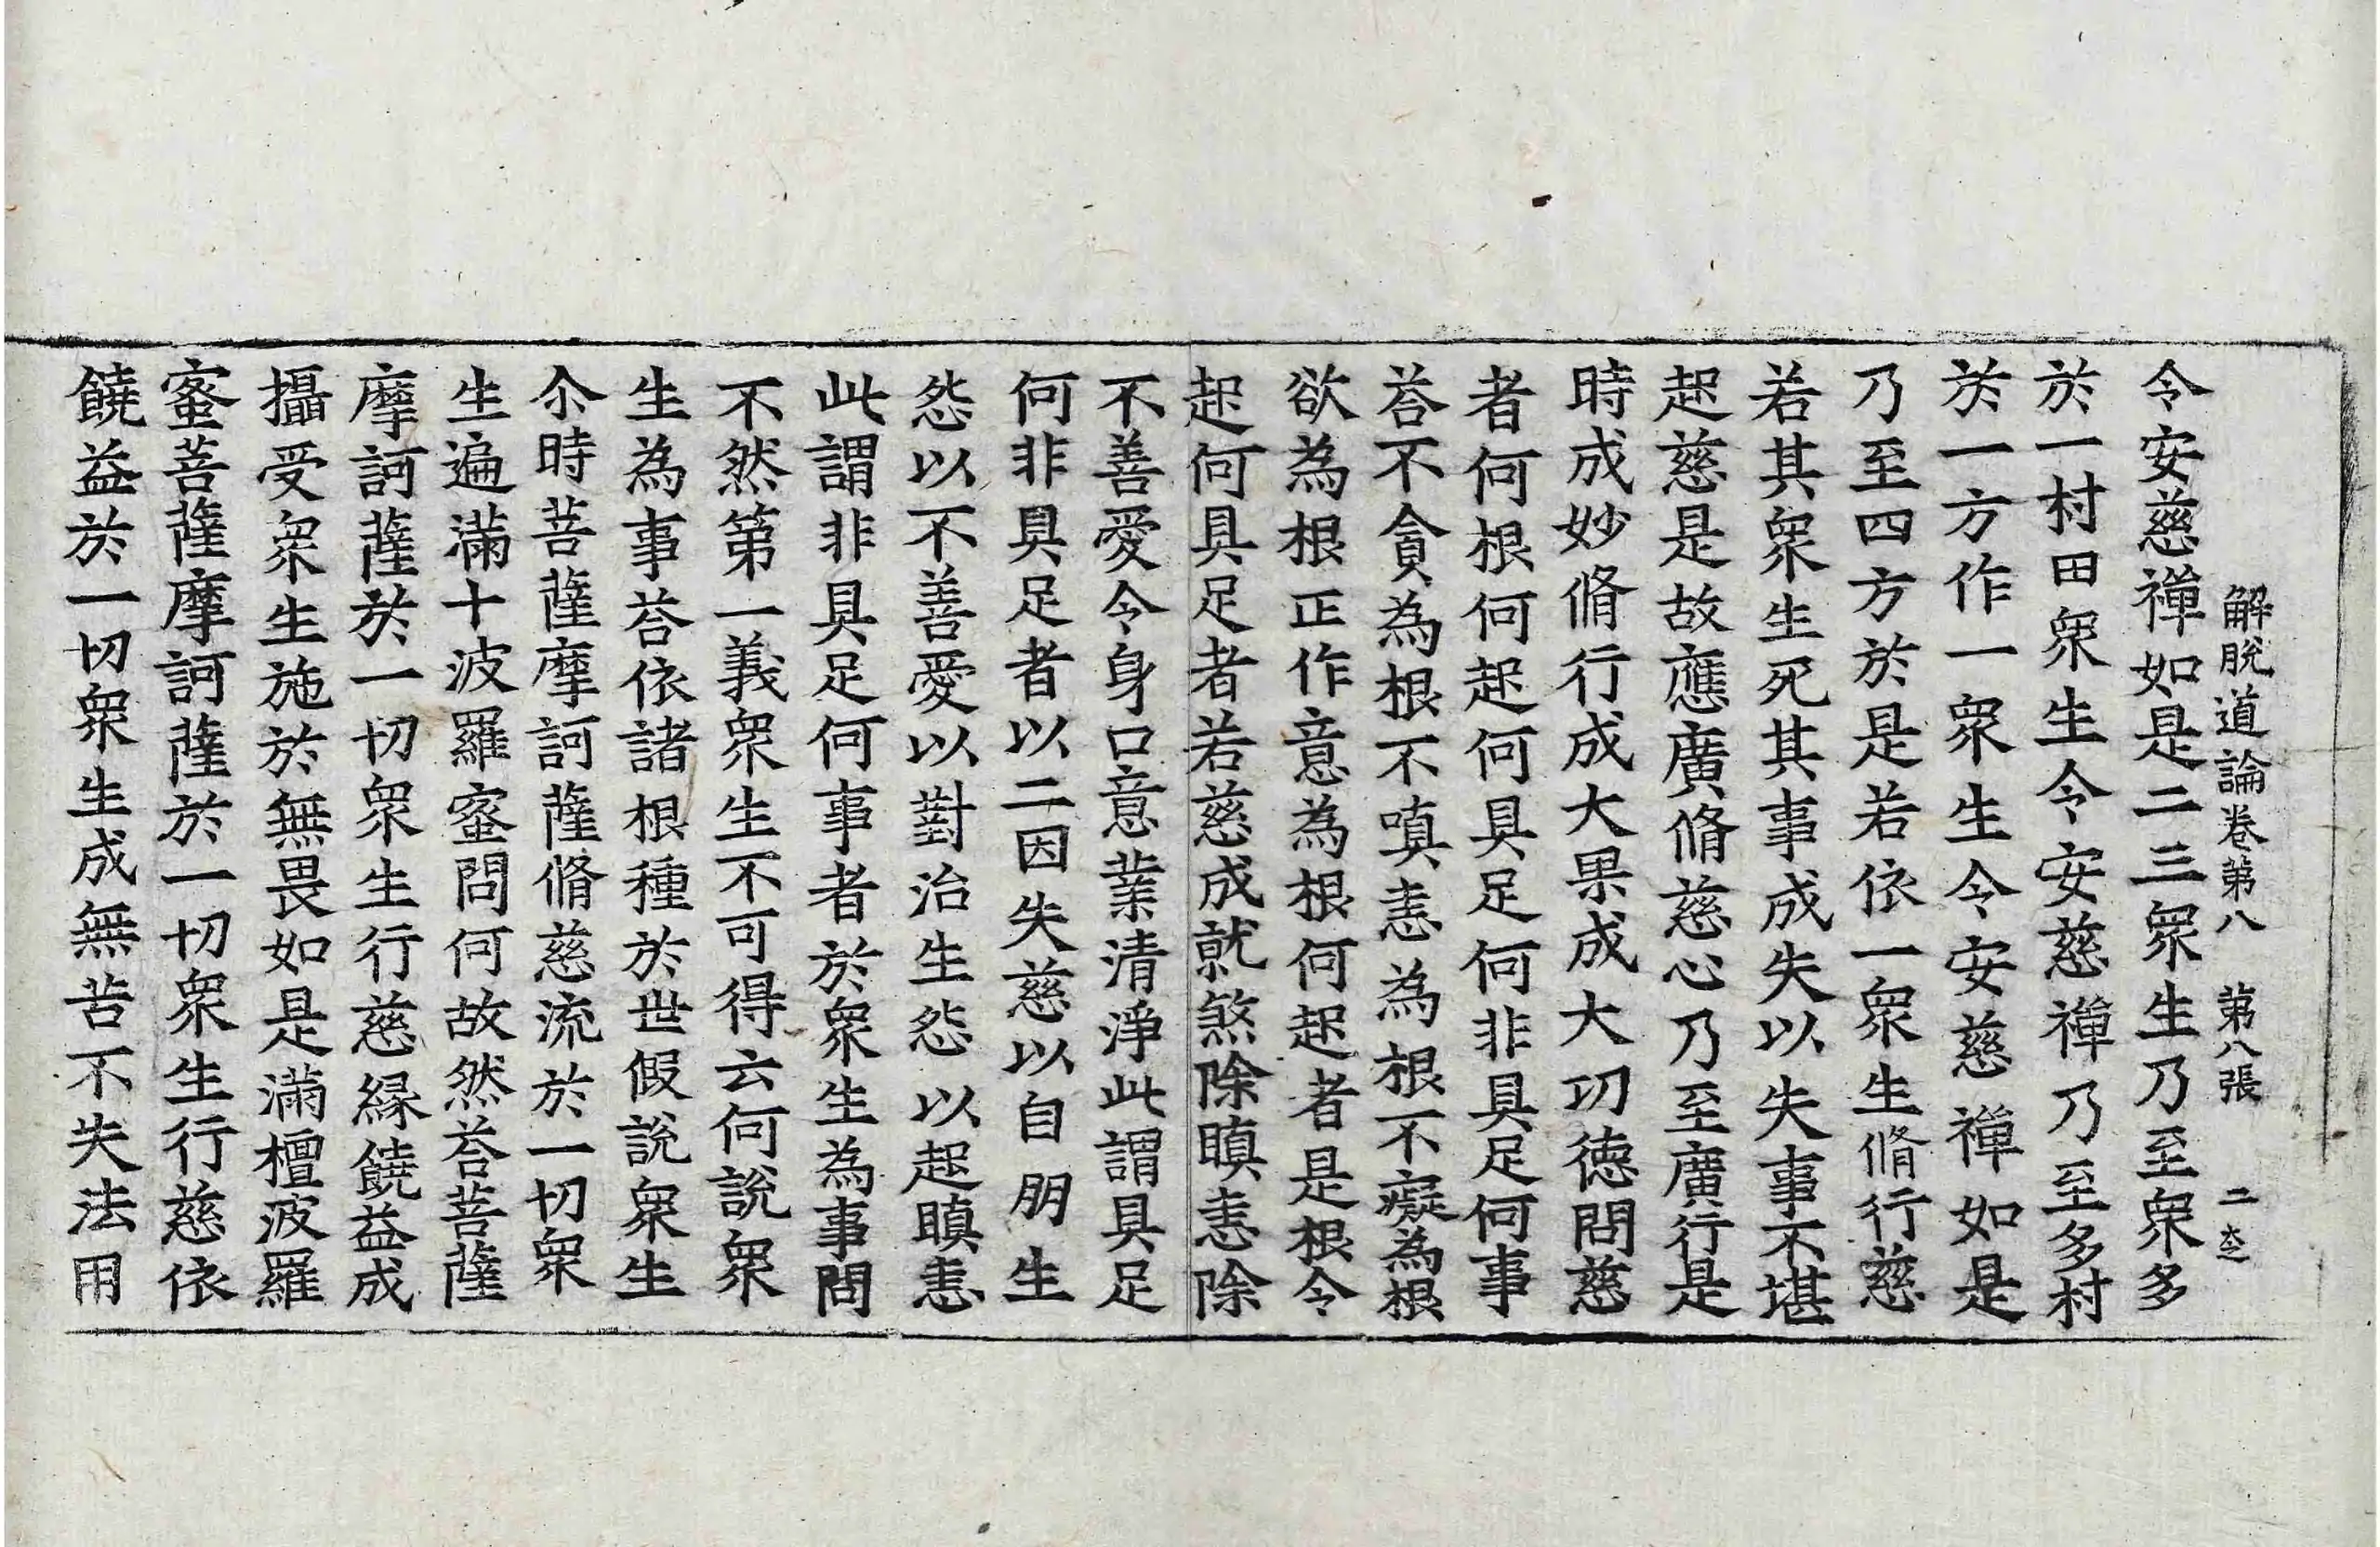 解脫道論卷第八 第八張 二
令安慈禪如是二三眾生乃至眾多
於一村田眾生令安慈禪乃至多村
於一方作一眾生令安慈禪如是
乃至四方於是若依一眾生脩行慈
若其眾生死其事成失以失事不堪
起慈是故應廣脩慈心乃至廣行是
時成妙脩行成大果成大功德問慈
者何根何起何具足何非具足何事
荅不貪為根不嗔恚為根不癡為根
欲為根正作意為根何起者是根令
起何具足者若慈成就煞除瞋恚除
不善愛令身口意業清淨此謂具足
何非具足者以二因失慈以自朋生
怨以不善愛以對治生怨以起瞋恚
此謂非具足何事者於眾生為事問
不然第一義眾生不可得云何說眾
生為事荅依諸根種於世假說眾生
尒時菩薩摩訶薩脩慈流於一切眾
生遍滿十波羅蜜問何故然荅菩薩
摩訶薩於一切眾生行慈緣饒益成
攝受眾生施於無畏如是滿檀波羅
蜜菩薩摩訶薩於一切眾生行慈依
饒益於一切眾生成無苦不失法用